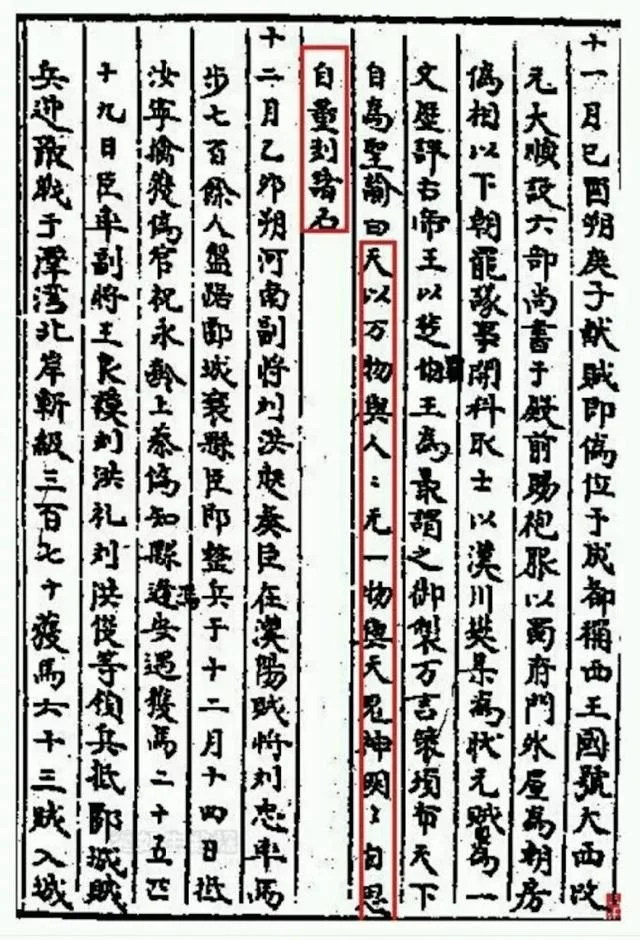 十一月已酉朔庚子献賊即偽位于成都稱西王國號大西改
元大順設六部尚書于殿前賜袍服以蜀府門外屋為朝房
偽相以下朝罷議事開科取士以漢川樊某為状元賊為一
文歷評古帝王以楚霸王為最謂之御製万言策頒布天下
自為聖諭曰天以万物與人〻无一物與天鬼神明〻自思
自量刻諸石
十二月乙卯朔河南副將刘洪起奏臣在漢陽賊將刘忠率馬
步七百餘人盤踞郾城襄縣臣即整兵于十二月十四日抵
汝寧擒獲偽官祝永齡上蔡偽知縣馮安遇獲馬二十五匹
十九日臣率副將王良獲刘洪礼刘洪従等領兵抵郾城賊
兵迎敵戰于潭湾北岸斬級三百七十獲馬六十三賊入城